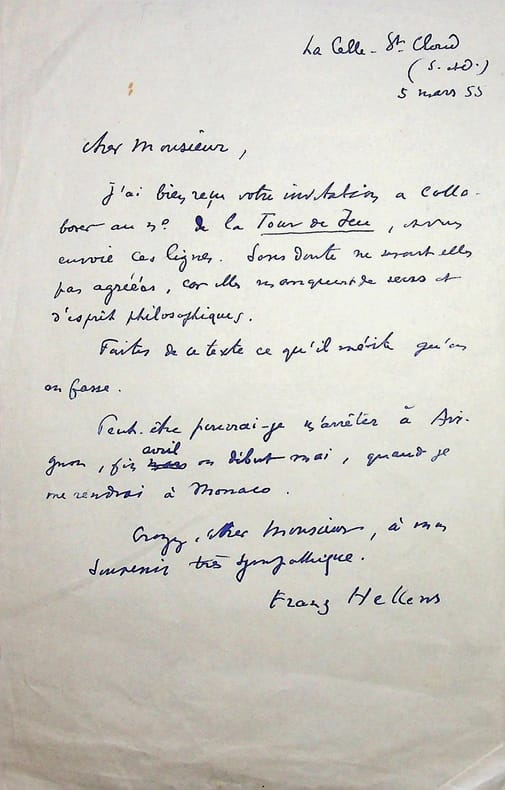 La Celle-St Cloud
(S. et O.)
5 mars 55
Cher Monsieur,
J'ai bien reçu votre invitation à colla-
borer au no de la Tour de Feu, et vous
envoie ces lignes. Sans doute ne seront elles
pas agréées, car elles manquent de sens et
d'esprit philosophiques.
Faites de ce texte ce qu'il mérite qu'on
en fasse.
Peut-être pourrai-je m'arrêter à Avi-
gnon, fin avril ou début mai, quand je
me rendrai à Monaco.
Croyez, cher Monsieur, à mon
souvenir très sympathique.
Franz Hellens